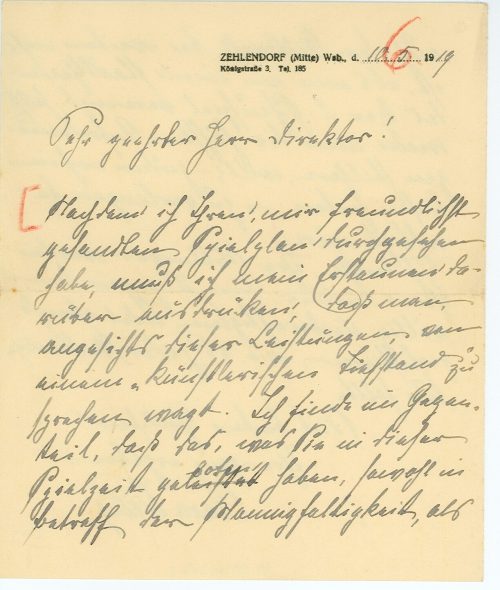 ZEHLENDORF (Mitte) Wsb., d. 10.5. 1919
6
Königstraße 3, Tel. 185
Sehr geehrter Herr Direktor!
[Nachdem ich Ihren, mir freundlichst
gesandten Spielplan durchgesehen
habe, muß ich mein Erstaunen da-
rüber ausdrücken, daß man,
angesichts dieser Leistungen, von
einem „künstlerischen Tiefstand" zu
sprechen wagt. Ich finde im Gegen-
teil, daß das, was Sie in dieser
Spielzeit geboten haben, sowohl in
betreff der Mannigfaltigkeit, als